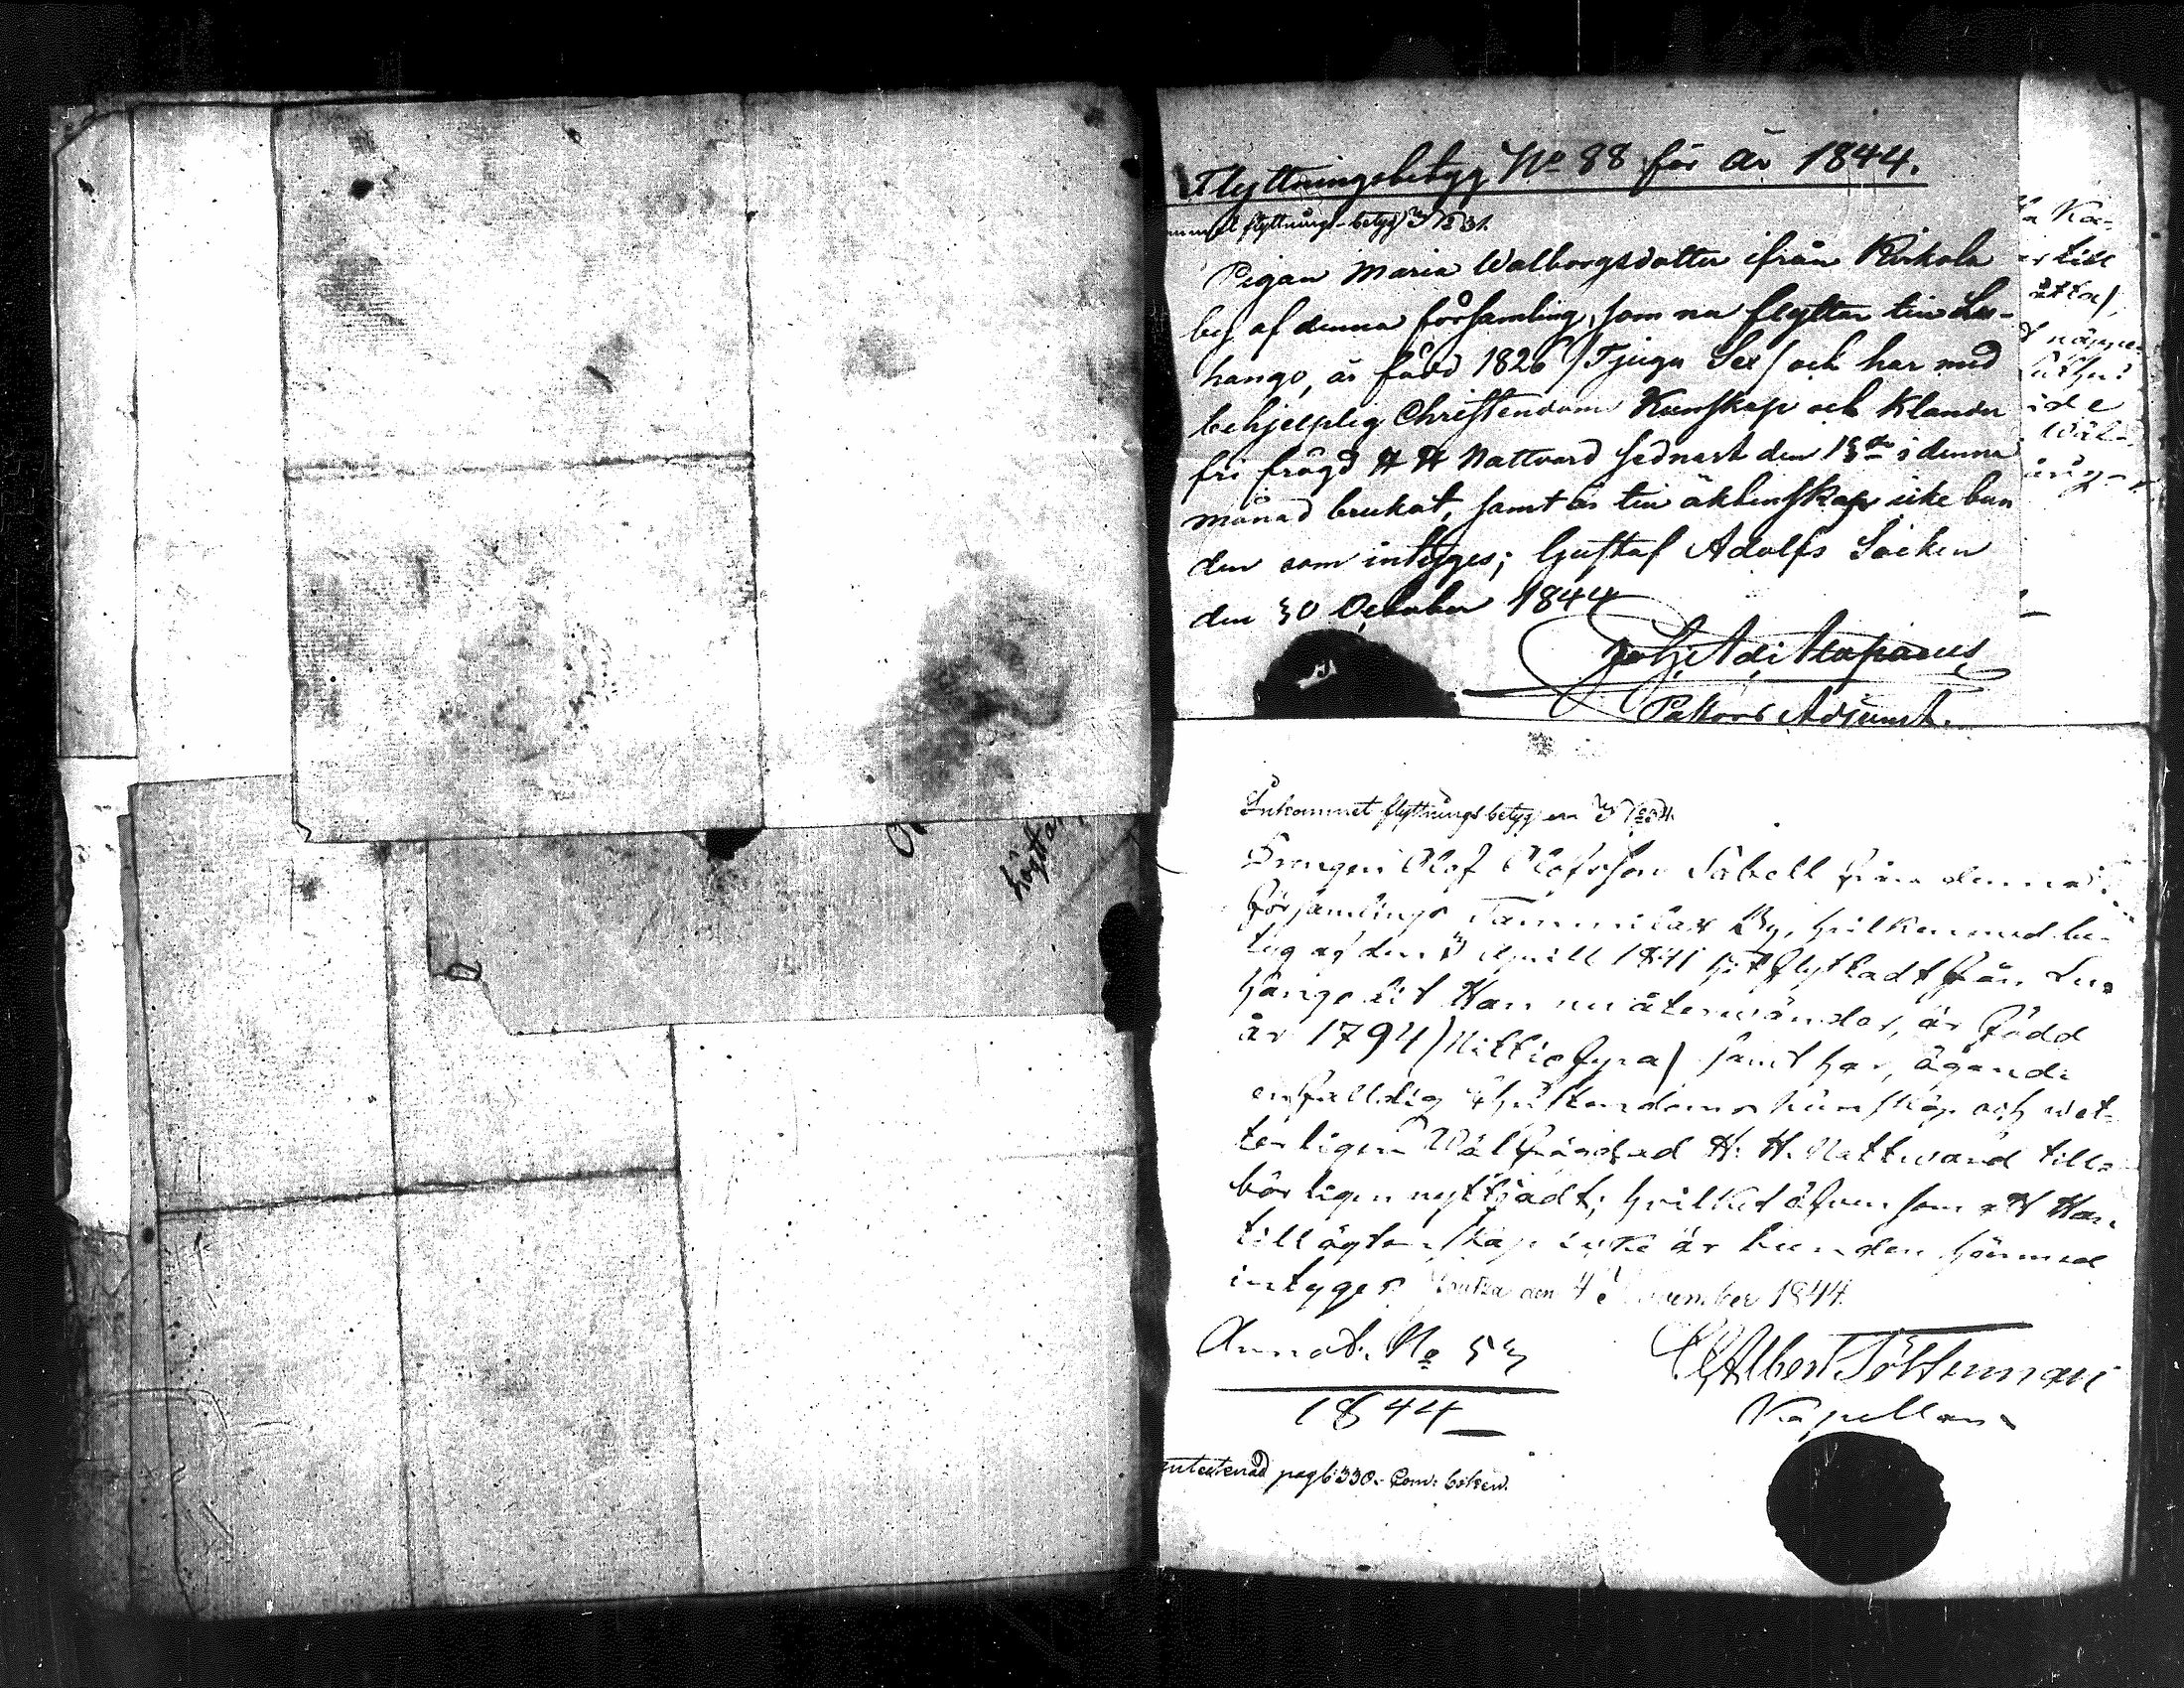 Flyttningsbetyg No 88 för år 1844.
flyttnings-betyg No 31.
Pigan Maria Walborgsdotter ifrån Kirkola
by af denna församling, som nu flyttar till Lu-
hango, är född 1826 /Tjugu Sex/ och har med
behjelplig Christendoms Kunskap och klander
fri frägd H H Nattvard sednast den 13de i denna
månad brukat, samt är till äktenskap icke bun
den som intygas; Gustaf Adolfs Socken
den 30 October 1844
Pastors Adjunct.
a Ka-
er till
åtta/,
Inkommet flyttningsbetyg
Drengen Olof Olofsson Sabell från denna
församlings Tammilax By, hvilken med be-
tyg af den 3 April 1841 hit flyttadt från Lu-
hango dit Han nu återvänder, är född
år 1794 /Nittiofyra/ samt har, ägande
enfalldig Christendoms kunskap och vet-
terligen Välfrägdad H. H. Nattvard till-
börligen nyttjadt; hvilket äfvensom att Han
till ägtenskap icke är bunden härmed
intygas Joutsa den 4 November 1844.
Annot. No 53
1844
Albert Tötterman
Kapellan
antecknad pag 6330. Com: boken.
högtta